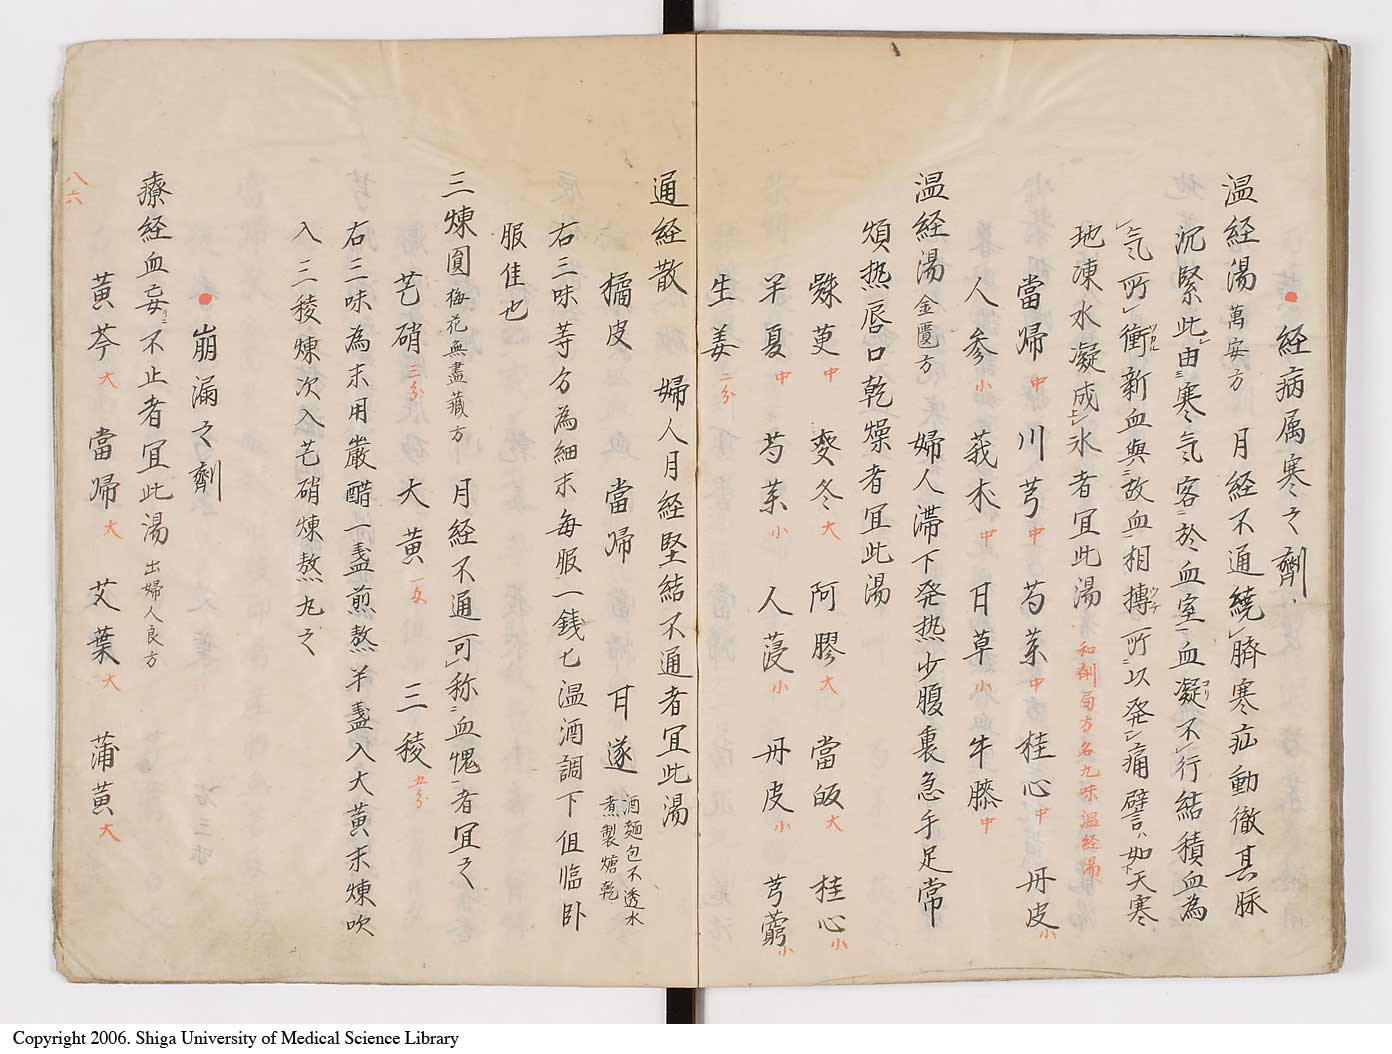 経病属寒之劑
温経湯 萬安方 月経不通繞臍寒疝動徹其脉
沉緊此由寒気客於血室血凝不行結積血為
気所衝新血與故血相搏所以発痛譬如天寒
地凍水凝成氷者宜此湯 和剤局方名九味温経湯
當帰中 川芎中 芍薬中 桂心中 丹皮小
人参小 莪朮中 甘草小 牛膝中
温経湯 金匱方 婦人滞下発熱少腹裏急手足常
煩热唇口乾燥者宜此湯
茱萸中 麥冬大 阿膠大 當皈大 桂心小
半夏中 芍薬小 人蓡小 丹皮小 芎藭小
生姜二分
通経散 婦人月経堅結不通者宜此湯
橘皮 當帰 甘遂 酒麺包不透水煮製煻乾
右三味等分為細末毎服一銭匕温酒調下但臨卧
服佳也
三煉圓 梅花無盡蔵方 月経不通可称血愧者宜之
芒硝三分 大黄一友 三稜五分
右三味為末用嚴醋一盞煎熬半盞入大黄末煉次
入三稜煉次入芒硝煉熬丸之
崩漏之劑
療経血妄不止者宜此湯 出婦人良方
黄芩大 當帰大 艾葉大 蒲黄大
八六
Copyright 2006. Shiga University of Medical Science Library